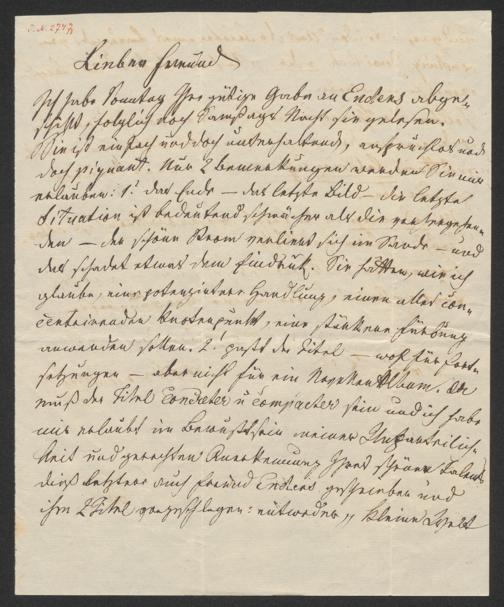 I.N. 2747
Lieber Freund
Ich habe Sonntag Ihre gütige Gabe an Enders abge-
schikt, folglich doch Samstags Nacht sie gelesen.
Sie ist einfach und doch unterhaltend, anspruchlos und
doch piquant. Nur 2 Bemerkungen werden Sie mir
erlauben: 1. das Ende – das letzte Bild – die letzte
Situation ist bedeutend schwächer als die vorhergehen-
den – der schöne Strom verliert sich im Sande – und
das schadet etwas dem Eindruk. Sie hätten, wie ich
glaube, eine potenzirtere Handlung, einen alles con-
centrirenden Knotenpunkt, eine stärkere Färbung
anwenden sollen. 2. paßt der Titel – wol für Fort-
setzungen – aber nicht für ein Novellen Album. Da
muß der Titel concreter u compacter sein und ich habe
mir erlaubt im Bewußtsein meiner Unparteilich-
keit und gerechten Anerkennung Ihres schönen Talents
dieß letztere auch Freund Enders geschrieben und
ihm 2 Titel vorgeschlagen: entweder „Kleine Welt